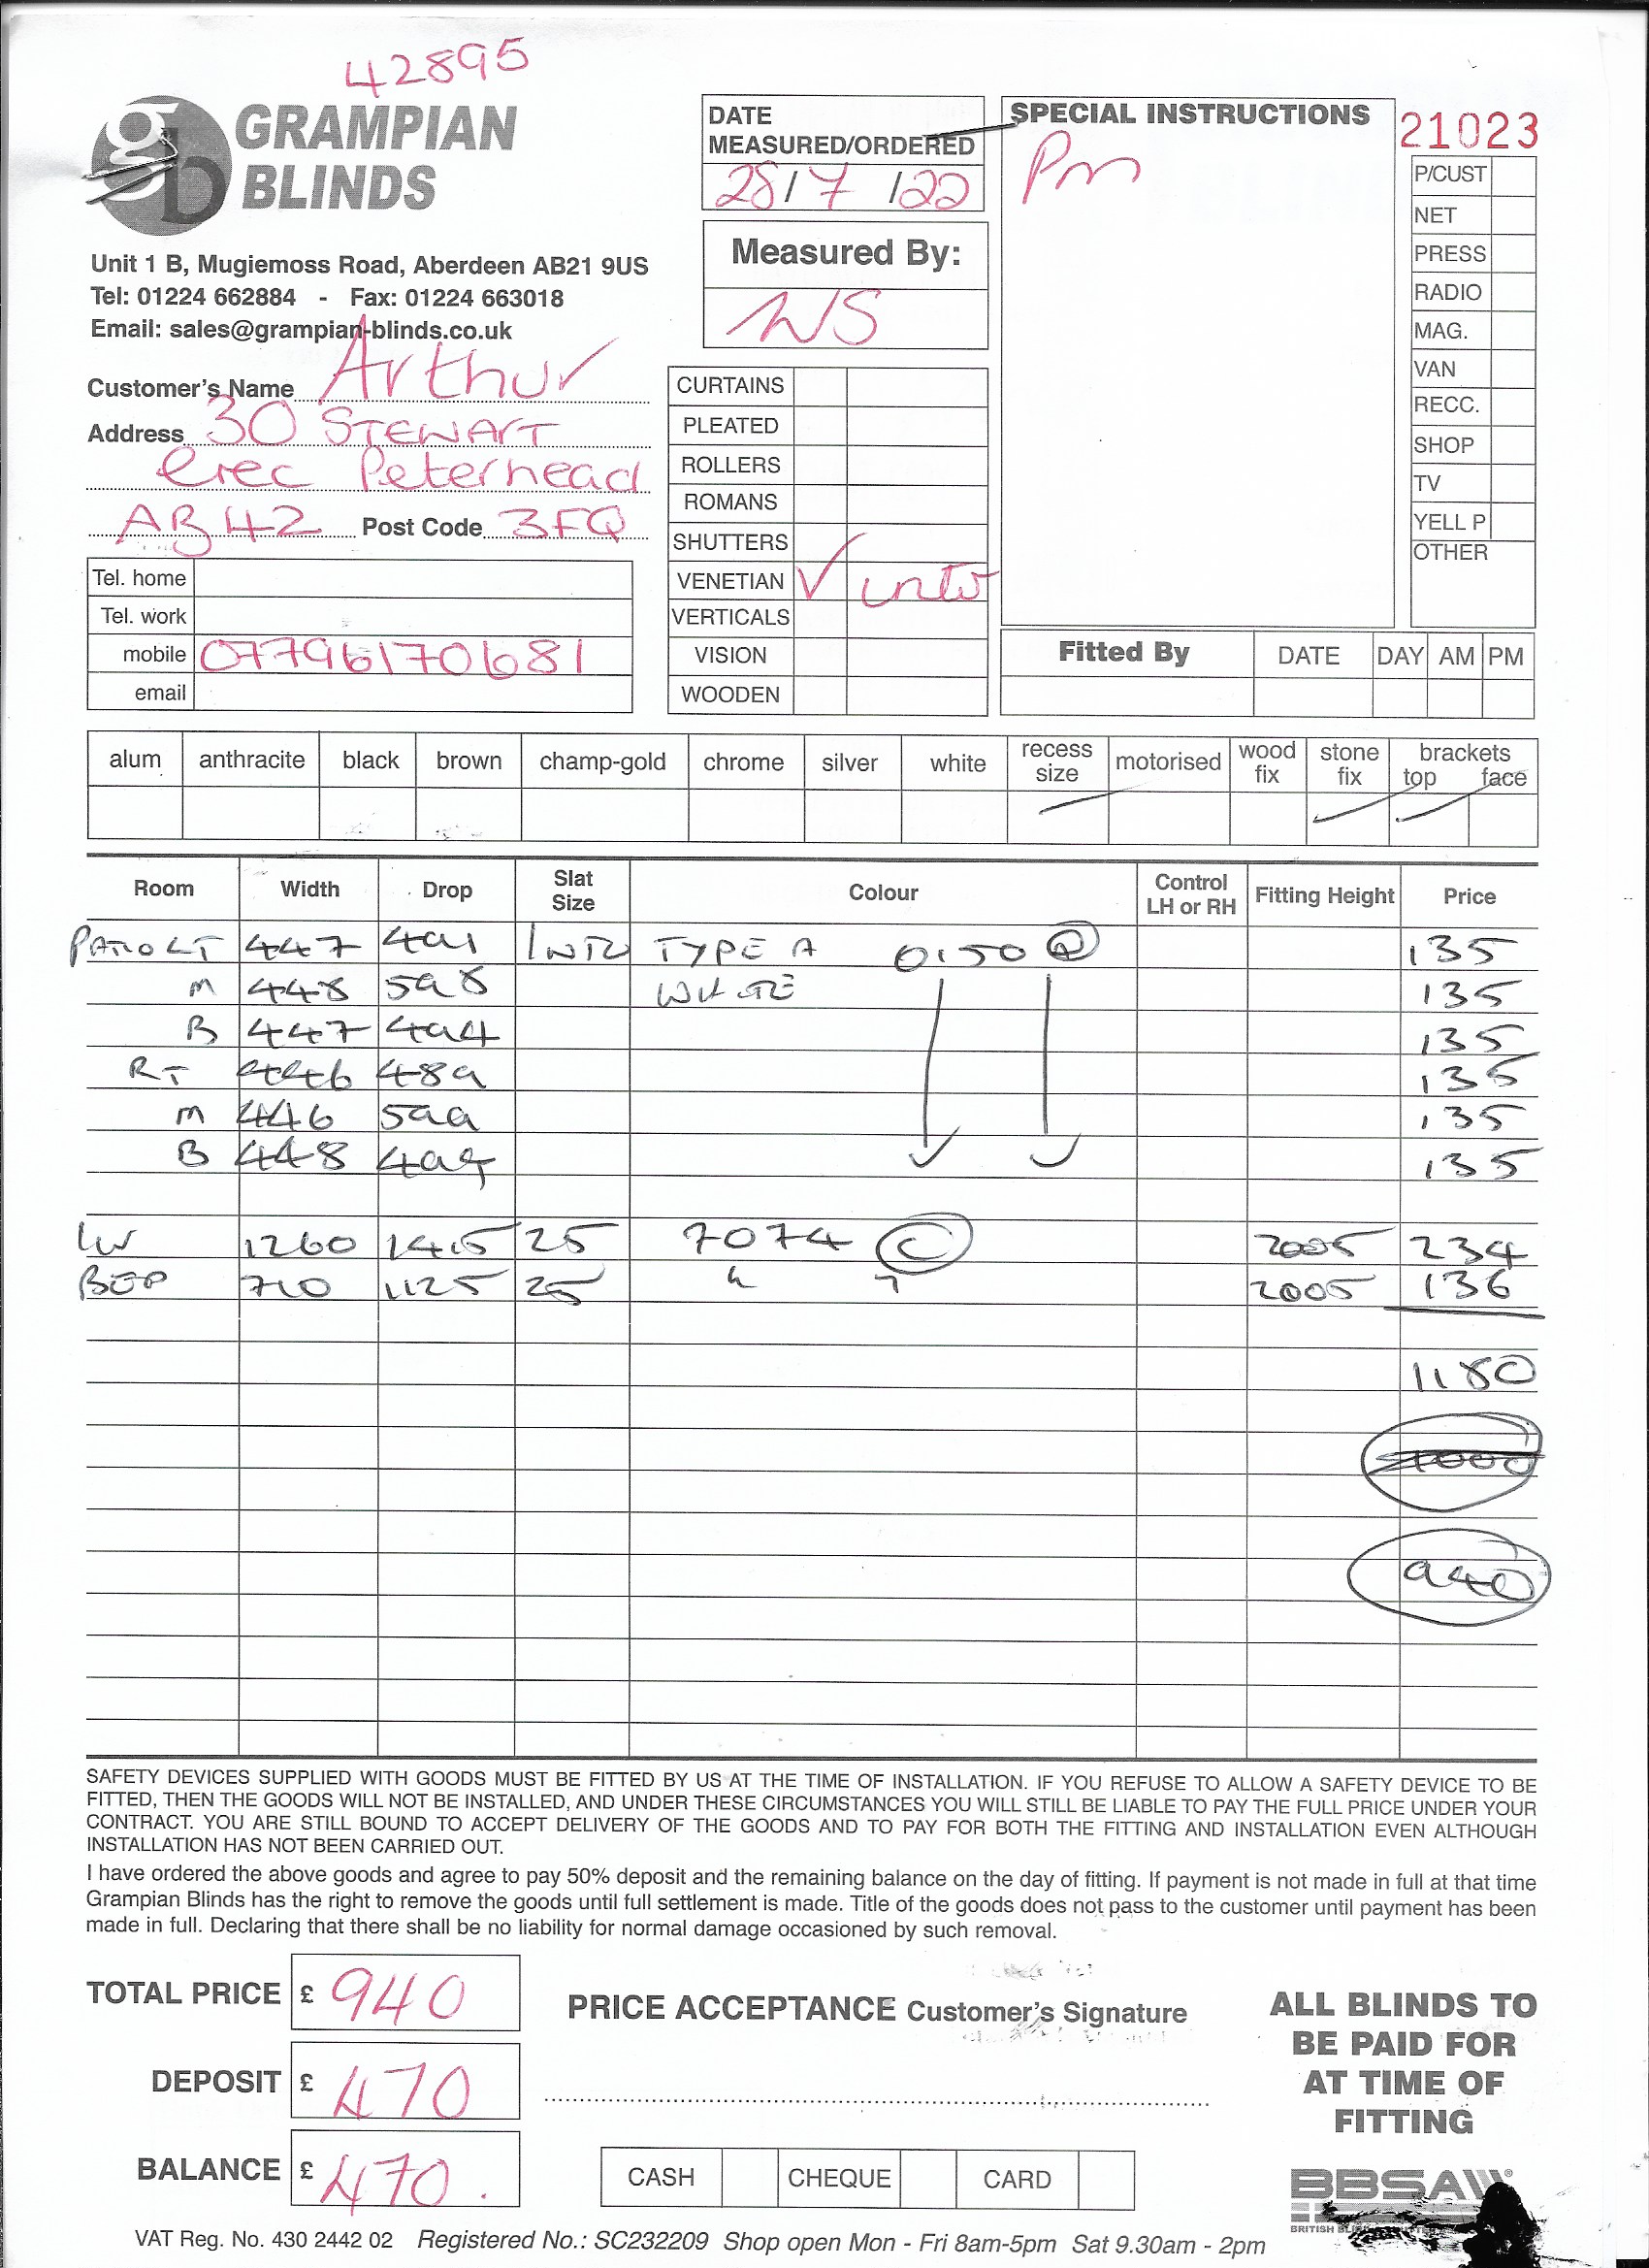 42895
GRAMPIAN
BLINDS
Unit 1 B, Mugiemoss Road, Aberdeen AB21 9US
Tel: 01224 662884 - Fax: 01224 663018
Email: sales@grampian-blinds.co.uk
Customer's Name Arthur
Address 30 STEWART
Crec Peterhead
AB42 Post Code 3FQ
Tel. home
Tel. work
mobile 07796170681
email
DATE
MEASURED/ORDERED
28/7/22
Measured By:
NS
CURTAINS
PLEATED
ROLLERS
ROMANS
SHUTTERS
VENETIAN ✓ intu
VERTICALS
VISION
WOODEN
SPECIAL INSTRUCTIONS
Pm
21023
P/CUST
NET
PRESS
RADIO
MAG.
VAN
RECC.
SHOP
TV
YELL P
OTHER
Fitted By DATE DAY AM PM
alum anthracite black brown champ-gold chrome silver white recess size motorised wood fix stone fix brackets top face
Room Width Drop Slat Size Colour Control LH or RH Fitting Height Price
PATIO LT 447 491 INTU TYPE A 0150 135
M 448 598 WHITE 135
B 447 494 135
RT 446 489 135
M 446 599 135
B 448 495 135
LV 1260 1415 25 7074 C 2005 234
BED 710 1125 25 " " 2005 136
1180
1000
940
SAFETY DEVICES SUPPLIED WITH GOODS MUST BE FITTED BY US AT THE TIME OF INSTALLATION. IF YOU REFUSE TO ALLOW A SAFETY DEVICE TO BE
FITTED, THEN THE GOODS WILL NOT BE INSTALLED, AND UNDER THESE CIRCUMSTANCES YOU WILL STILL BE LIABLE TO PAY THE FULL PRICE UNDER YOUR
CONTRACT. YOU ARE STILL BOUND TO ACCEPT DELIVERY OF THE GOODS AND TO PAY FOR BOTH THE FITTING AND INSTALLATION EVEN ALTHOUGH
INSTALLATION HAS NOT BEEN CARRIED OUT.
I have ordered the above goods and agree to pay 50% deposit and the remaining balance on the day of fitting. If payment is not made in full at that time
Grampian Blinds has the right to remove the goods until full settlement is made. Title of the goods does not pass to the customer until payment has been
made in full. Declaring that there shall be no liability for normal damage occasioned by such removal.
TOTAL PRICE £ 940
DEPOSIT £ 470
BALANCE £ 470.
PRICE ACCEPTANCE Customer's Signature
CASH CHEQUE CARD
ALL BLINDS TO
BE PAID FOR
AT TIME OF
FITTING
BBSA
BRITISH
VAT Reg. No. 430 2442 02 Registered No.: SC232209 Shop open Mon - Fri 8am-5pm Sat 9.30am - 2pm